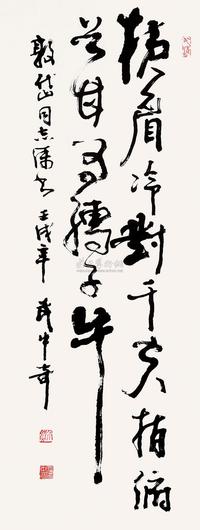 横眉冷對千夫指俯
首甘为孺子牛
敦岱同志属书 壬戌年 武中奇